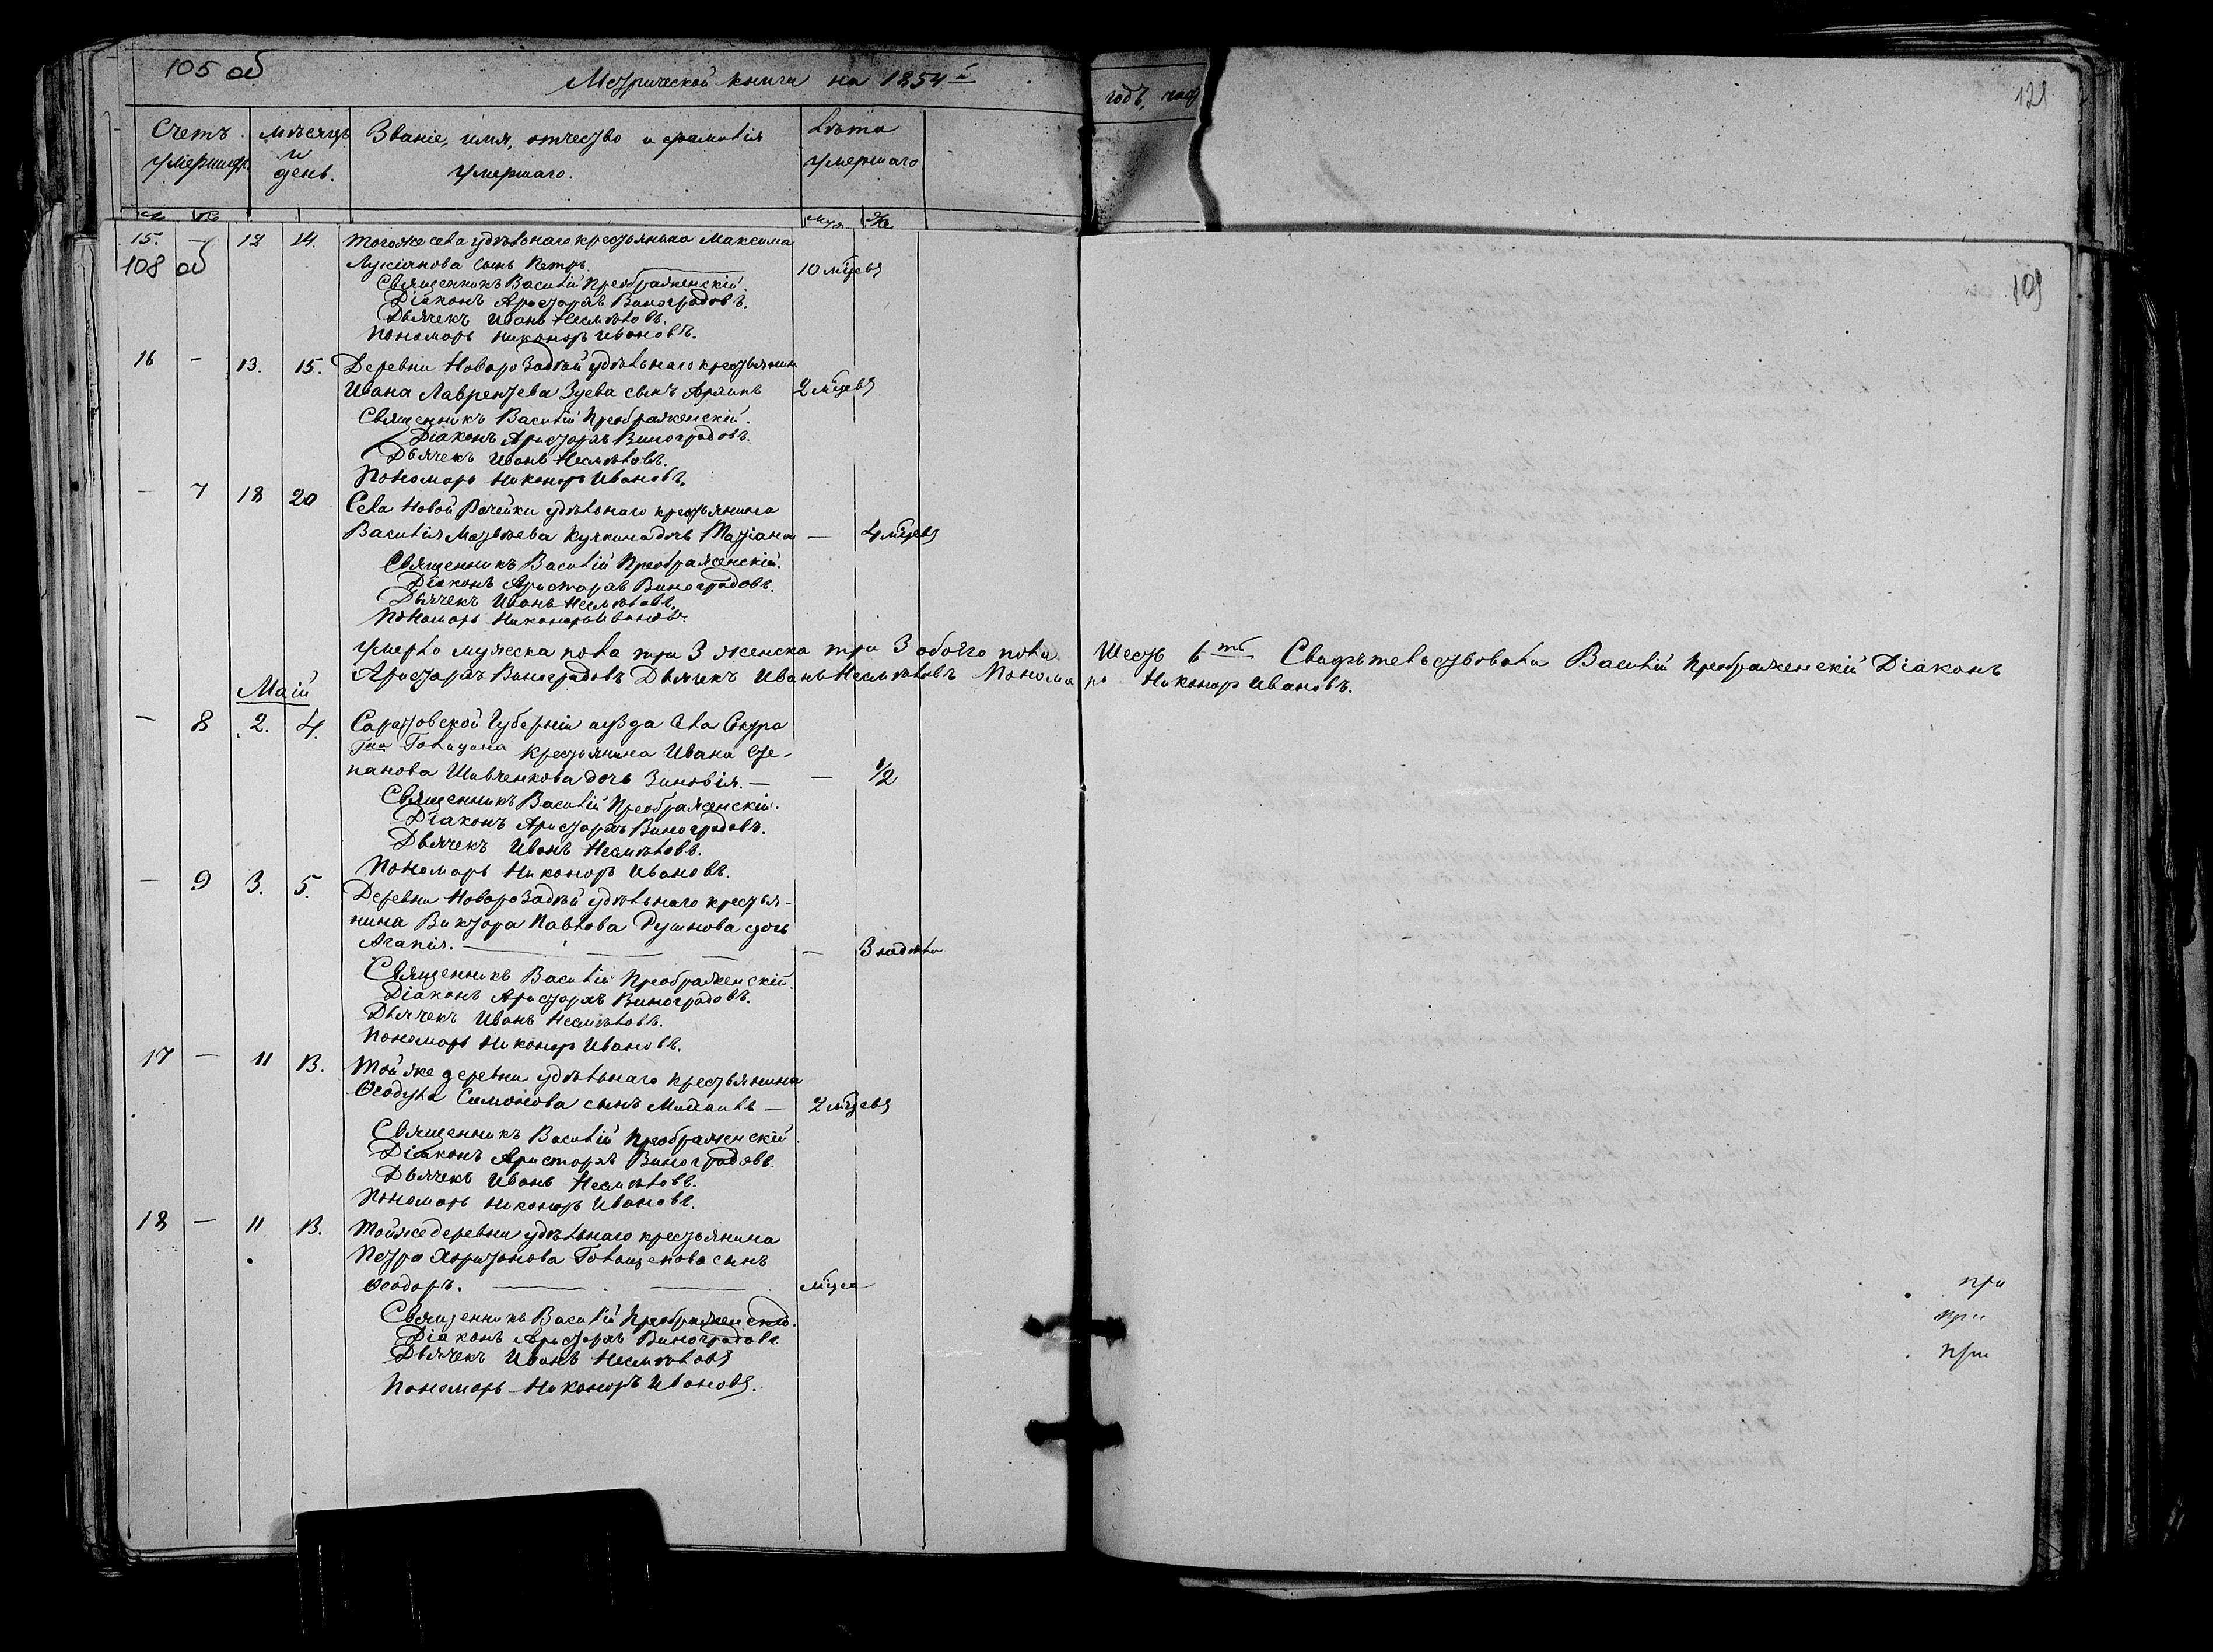 105 об
Метрической книги на 1854й
годъ, час
121
Счетъ умершихъ.
Мѣсяцъ и день.
Званіе, имя, отчество и фамилія умершаго.
Лѣта умершаго
15. — 12 14. Тогоже села удѣльнаго крестьянина Максима
108 об
Лукіянова сынъ Петръ. 10 мѣцевъ
109
Священникъ Василій Преображенскій.
Діаконъ Аристархъ Виноградовъ.
Дьячекъ Иванъ Несмѣловъ.
Пономарь Никоноръ Ивановъ.
16 — 13. 15. Деревни Новорозадѣй удѣльнаго крестьянина
Ивана Лаврентьева Зуева сынъ 2 мѣцевъ
Священникъ Василій Преображенскій.
Діаконъ Аристархъ Виноградовъ.
Дьячекъ Иванъ Несмѣловъ.
Пономарь Никоноръ Ивановъ.
— 7 18 20 Села Новой Рачейки удѣльнаго крестьянина
Василія Матвѣева дочь Татіана — 4 мѣцевъ
Священникъ Василій Преображенскій.
Діаконъ Аристархъ Виноградовъ.
Дьячекъ Иванъ Несмѣловъ.
Пономарь Никоноръ Ивановъ.
Умерло мужеска пола три 3 женска три 3 обоего пола Шесть 6ть Свидѣтельствовали Василій Преображенскій Діаконъ
Аристархъ Виноградовъ Дьячекъ Иванъ Несмѣловъ Пономарь Никоноръ Ивановъ.
Маій
— 8 2. 4. Саратовской Губерніи села
крестьянина Ивана Сте-
панова Шевченкова дочь Зиновія. — — 1/2
Священникъ Василій Преображенскій.
Діаконъ Аристархъ Виноградовъ.
Дьячекъ Иванъ Несмѣловъ.
Пономарь Никоноръ Ивановъ.
— 9 3. 5. Деревни Новорозадѣй удѣльнаго крестья-
нина Виктора Павлова дочь
Агапія. — — 3 недѣли
Священникъ Василій Преображенскій.
Діаконъ Аристархъ Виноградовъ.
Дьячекъ Иванъ Несмѣловъ.
Пономарь Никоноръ Ивановъ.
17 — 11 13. Той же деревни удѣльнаго крестьянина
Ѳеодула Симонова сынъ Михаилъ — 2 мѣцевъ
Священникъ Василій Преображенскій
Діаконъ Аристархъ Виноградовъ.
Дьячекъ Иванъ Несмѣловъ.
Пономарь Никоноръ Ивановъ.
18 — 11 13. Тойже деревни удѣльнаго крестьянина
Петра Харитонова сынъ
Ѳеодоръ. — — мѣсец
Священникъ Василій Преображенскій.
Діаконъ Аристархъ Виноградовъ
Дьячекъ Иванъ Несмѣловъ
Пономарь Никоноръ Ивановъ.
при
при
при